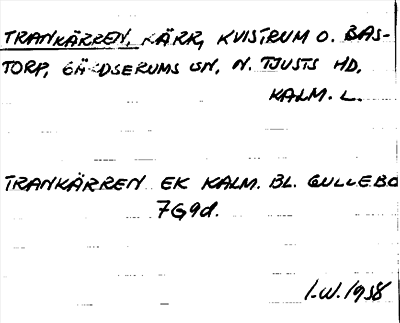 TRANKÄRREN, KÄRR, KVISTRUM O. BAS-
TORP, GÄRDSERUMS SN, N. TJUSTS HD,
KALM. L.
TRANKÄRREN EK KALM. BL. GULLEBO
7G9d.
I.W. 1938